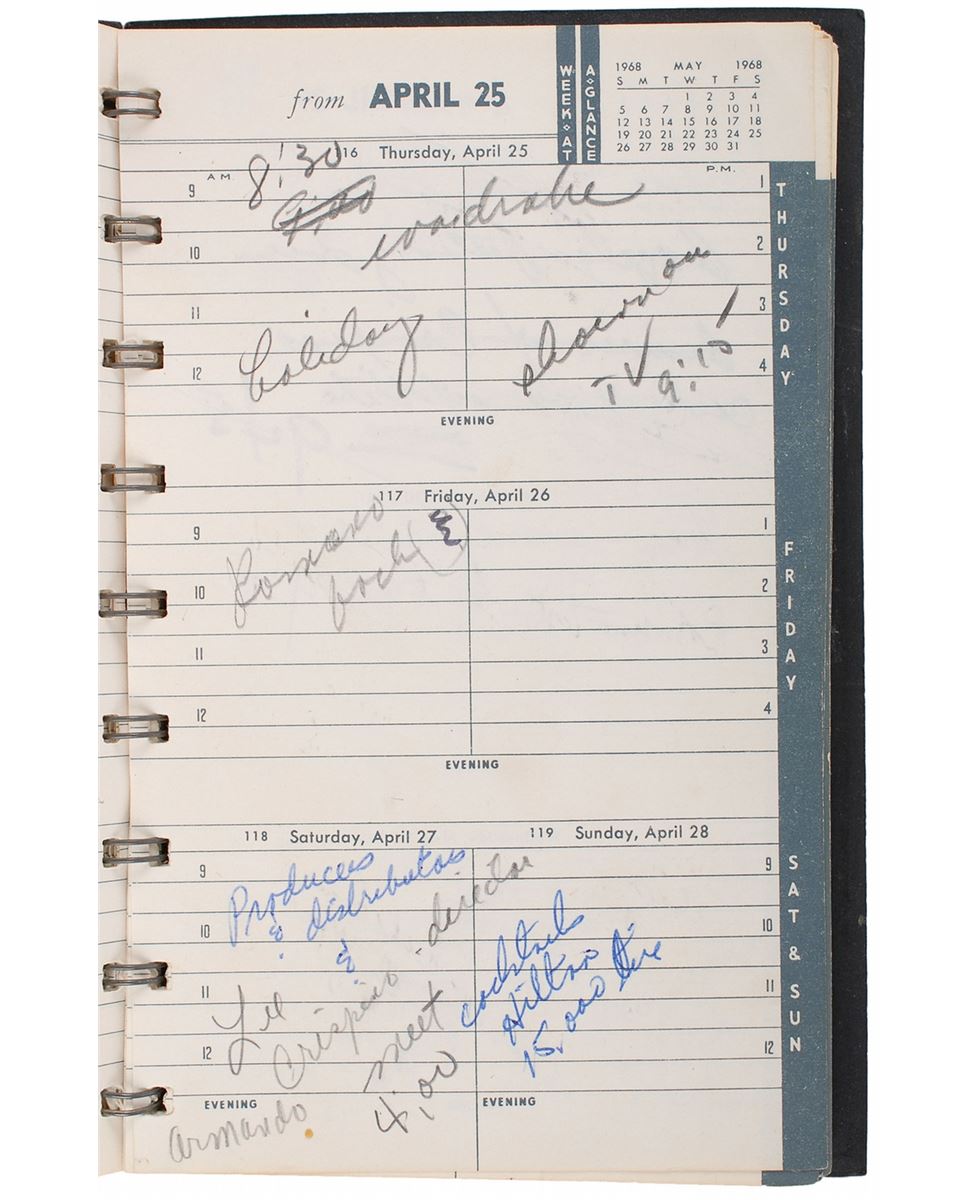 from APRIL 25
WEEK AT A GLANCE
1968 MAY 1968
S M T W T F S
1 2 3 4
5 6 7 8 9 10 11
12 13 14 15 16 17 18
19 20 21 22 23 24 25
26 27 28 29 30 31
116 Thursday, April 25
A.M. P.M.
8:30
9:00
wardrobe
holiday
showman
TV 9:15
9 1
10 2
11 3
12 4
EVENING
THURSDAY
117 Friday, April 26
Romano
9 1
10 2
11 3
12 4
EVENING
FRIDAY
118 Saturday, April 27
Producers
& distributors
&
Lee
Crispino - director
meet
4:00
9
10
11
12
EVENING
Armando
119 Sunday, April 28
cocktails
Hilton
15,000
9
10
11
12
EVENING
SAT & SUN